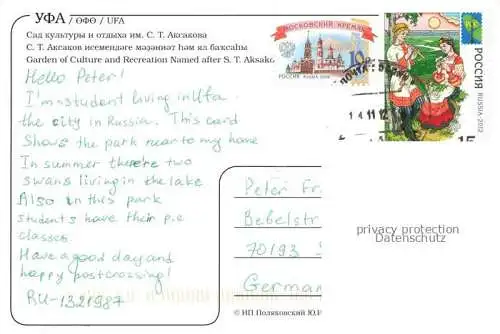 УФА / ӨФӨ / UFA
Сад культуры и отдыха им. С. Т. Аксакова
С. Т. Аксаков исемендәге мәҙәниәт һәм ял баҡсаһы
Garden of Culture and Recreation Named after S. T. Aksako
Hello Peter!
I'm student living in Ufa
the city in Russia. This card
shows the park near to my home
In summer there're two
swans living in the lake
Also in this park
students have their p.e
classes
Have a good day and
happy postcrossing!
RU-1321987
МОСКОВСКИЙ КРЕМЛЬ
10
РОССИЯ RUSSIA
РОССИЯ RUSSIA·2012
15
ПОЧТА
14 11 12
Peter Fr
Bebelstr
70193
German
privacy protection
Datenschutz
© ИП Поляковский Ю.И